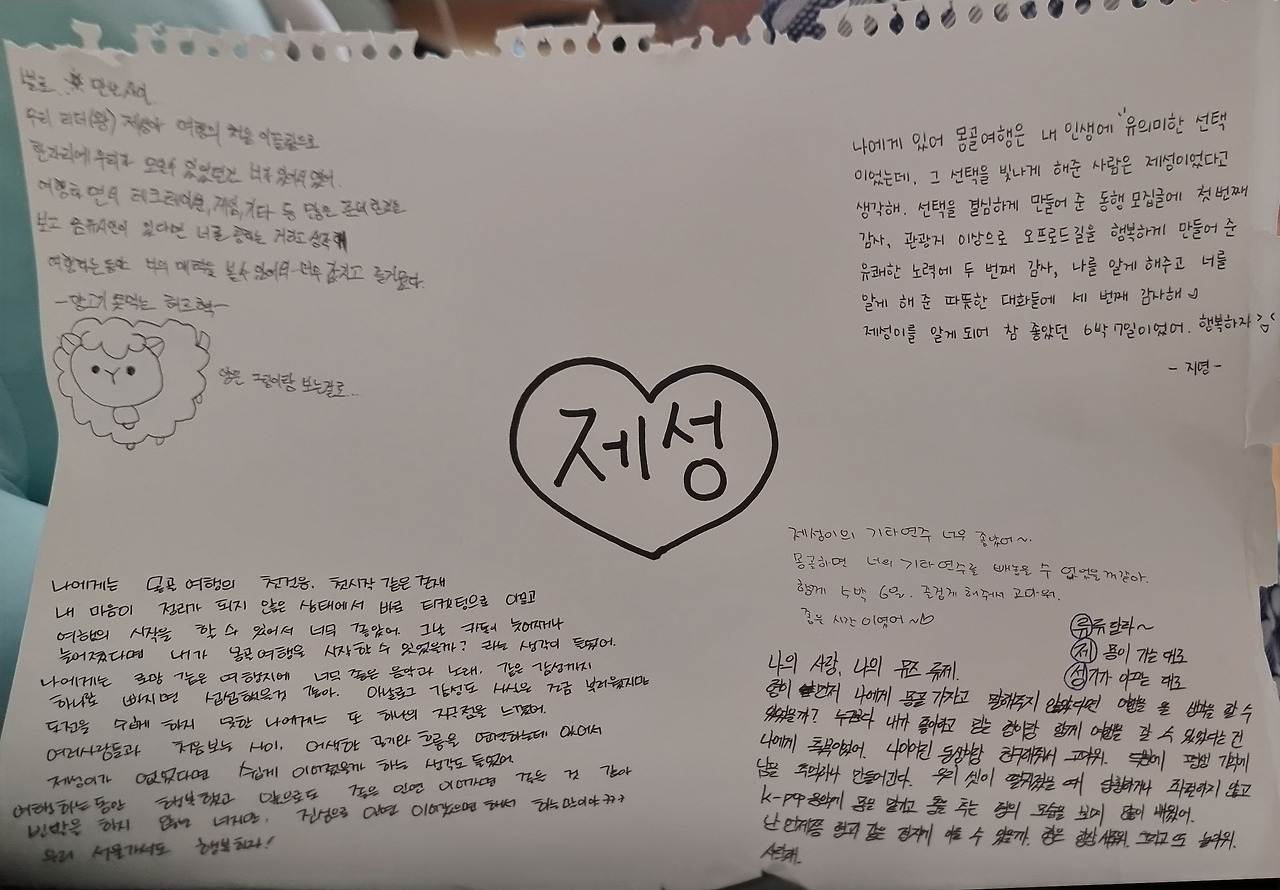 우리 리더(왕) 제성아 여행의 처음 이끎으로
한자리에 우리가 모일수 있었던건 너가 있어서 였어.
여행하면서 레크레이션, 게임, 기타 등 많은
보고 있다면 너를
여행하는동안 너의 매력을 볼수 있어 너무 값지고 즐거웠다.
양은 그림이랑 보는걸로...
나에게 있어 몽골여행은 내 인생에 "유의미한 선택
이었는데, 그 선택을 빛나게 해준 사람은 제성이었다고
생각해. 선택을 결심하게 만들어 준 동행 모집글에 첫 번째
감사, 관광지 이상으로 오프로드길을 행복하게 만들어 준
유쾌한 노력에 두 번째 감사, 나를 알게 해주고 너를
알게 해 준 따뜻한 대화들에 세 번째 감사해
제성이를 알게 되어 참 좋았던 6박 7일이었어. 행복하자
- 지영 -
제성
나에게는 몽골 여행의 첫걸음, 첫시작 같은 존재
내 마음이 정리가 되지 않은 상태에서 바로 티켓팅으로 이끌고
여행의 시작을 할 수 있어서 너무 좋았어. 그날 카톡이 늦어지거나
늘어졌다면 내가 몽골여행을 시작할 수 있었을까? 라는 생각이 들었어.
나에게는 로망 같은 여행지에 너무 좋은 음악과 노래, 같은 감성까지
하나로 빠지면 섭섭했을것 같아. 아날로그 감성도 사실은 조금 부러웠지만
도전을 쉽게 하지 못한 나에게는 또 하나의 자극점을 느꼈어.
여러사람들과 처음보는 사이, 어색한 공기와 흐름을 여행하는데 있어서
제성이가 없었다면 쉽게 이어졌을까 하는 생각도 들었어
여행하는동안 행복했고 앞으로도 좋은 인연 이어가면 좋은 것 같아
빈말을 하지 않는 너지만, 진심으로 인연 이어갔으면 해서 하는말이야 ㅋㅋㅋ
우리 서울가서도 행복하자!
제성이의 기타연주 너무 좋았어~.
몽골하면 너의 기타연주를 빼놓을 수 없었을꺼같아.
함께 5박 6일. 즐겁게 해주서 고마워.
좋은 시간이였어~♡
류 류달라~
제 몸이 가는 대로
성
나의 사랑, 나의 뮤즈 류제.
형이 먼저 나에게 몽골 가자고 말해주지 않았다면 여행을 올 생각을 할 수
있었을까? 누구보다 내가 좋아하고 믿는 형이랑 함께 여행을 갈 수 있었다는 건
나에게 특별했어. 나이어린 동생이랑 친구해줘서 고마워.
남을 추억거리 만들어간다. 우리 셋이
k-pop 춤을 추는 형의 모습을 보며 많이 배웠어.
난 언제쯤 형과 같은 경지에 이를 수 있을까. 형은 항상 새로워. 그리고 또 놀라워.
사랑해.